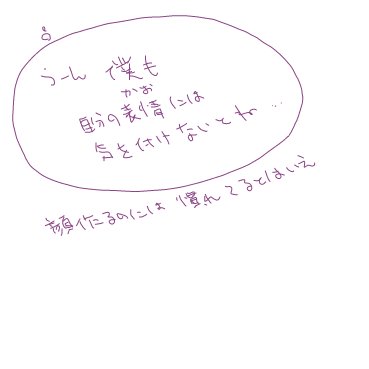 うーん 僕も
自分の表情には
かお
気を付けないとね…
顔作るのには慣れてるとはいえ